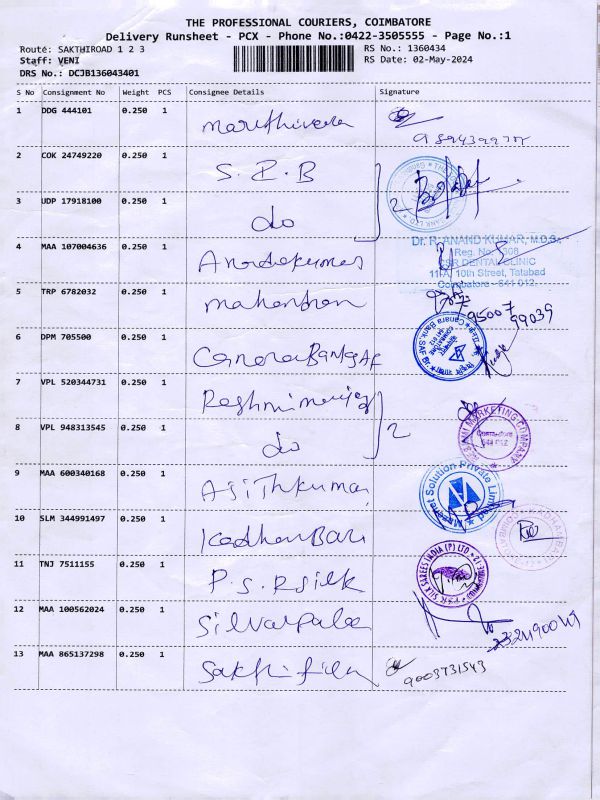 THE PROFESSIONAL COURIERS, COIMBATORE
Delivery Runsheet - PCX - Phone No.:0422-3505555 - Page No.:1
Route: SAKTHIROAD 1 2 3 RS No.: 1360434
Staff: VENI RS Date: 02-May-2024
DRS No.: DCJB136043401
S No Consignment No Weight PCS Consignee Details Signature
1 DDG 444101 0.250 1
2 COK 24749220 0.250 1 S.Z.B
3 UDP 17918100 0.250 1 do 2
Dr. R. ANAND KUMAR, M.D.S.
Reg. No.
CSR DENTAL CLINIC
11-A, 10th Street, Tatabad
Coimbatore - 641 012.
4 MAA 107004636 0.250 1
5 TRP 6782032 1 0.250 Mahendran 95007 99039
6 DPM 705500 0.250 1 Canara Bank
7 VPL 520344731 0.250 1
8 VPL 948313545 0.250 1 do 2
MARKETING COMPANY
9 MAA 600340168 0.250 1 Ajithkumar
Solution Private Limited
10 SLM 344991497 0.250 1
11 TNJ 7511155 0.250 1 P.S.R silk
SILK SAREES INDIA (P) LTD
12 MAA 100562024 0.250 1
13 MAA 865137298 0.250 1 9003731543